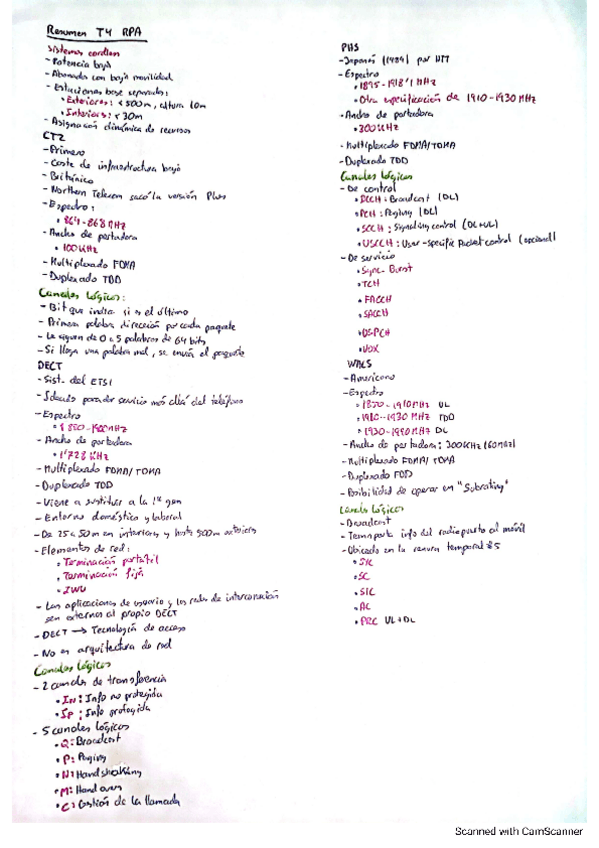 Resumen T4 RPA
Sistemas cordless
- Potencia baja
- Abonados con baja movilidad
- Estaciones base separadas:
• Exteriores: < 500m, altura 10m
• Interiores: < 30m
- Asignación dinámica de recursos
CT2
- Primero
- Coste de infraestructura bajo
- Británico
- Northern Telecom sacó la versión Plus
- Espectro:
• 864-868 MHz
- Ancho de portadora
• 100 KHz
- Multiplexado FDMA
- Duplexado TDD
Canales lógicos:
- Bit que indica si es el último
- Primera palabra dirección por cada paquete
- Le siguen de 0 a 5 palabras de 64 bits
- Si llega una palabra mal, se envía el paquete
DECT
- Sist. del ETSI
- Ideado para dar servicio más allá del teléfono
- Espectro
• 1880-1900 MHz
- Ancho de portadora
• 1'728 KHz
- Multiplexado FDMA/TDMA
- Duplexado TDD
- Viene a sustituir a la 1ª gen
- Entorno doméstico y laboral
- De 25 a 50m en interiores y hasta 300m exteriores
- Elementos de red:
• Terminación portátil
• Terminación fija
• IWU
- Las aplicaciones de usuario y las redes de interconexión
son externos al propio DECT
- DECT → Tecnología de acceso
- No es arquitectura de red
Canales lógicos
- 2 canales de transferencia
• In: Info no protegida
• Ip: Info protegida
- 5 canales lógicos
• Q: Broadcast
• P: Paging
• N: Handshaking
• M: Handover
• C: Gestión de la llamada
PHS
- Japonés (1989) por NTT
- Espectro
• 1895-1918'1 MHz
• Otra especificación de 1910-1930 MHz
- Ancho de portadora
• 300KHz
- Multiplexado FDMA/TDMA
- Duplexado TDD
Canales lógicos
- De control
• BCCH: Broadcast (DL)
• PCH: Paging (DL)
• SCCH: Signaling control (DL+UL)
• USCCH: User-specific Packet control (opcional)
- De servicio
• Sync-Burst
• TCH
• FACCH
• SACCH
• USPCH
• VOX
WACS
- Americano
- Espectro
• 1850-1910MHz UL
• 1910-1930 MHz TDD
• 1930-1990 MHz DL
- Ancho de portadora: 300KHz
- Multiplexado FDMA/TDMA
- Duplexado FDD
- Posibilidad de operar en "Subrating"
Canales lógicos
- Broadcast
- Transporta info del radiopuerto al móvil
- Ubicado en la ranura temporal #5
• SYC
• SC
• SIC
• AC
• PRC UL+DL